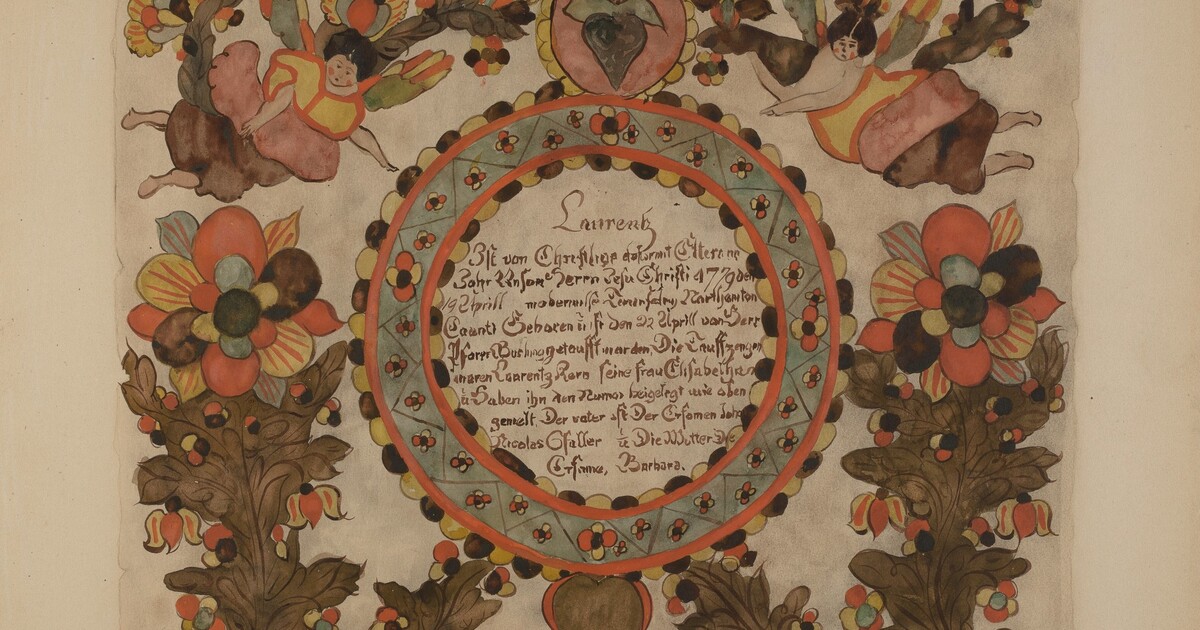 Laurentz
Ist von Christlige Eltern
Jahr Unser Herrn Jesu Christi 1779 den
19 Aprill Northamton
Caunti Geboren ū ist den 22 Aprill von Herr
Pfarer getaufft worden, Die Tauffzeugen
waren Laurentz Korn seine frau Elisabetha
ū Haben ihn den Numen beigelegt wie oben
gemelt, Der vater ist Der Ersamen Joh
Nicolas Gfaller ū Die Mutter Die
Ersame, Barbara.